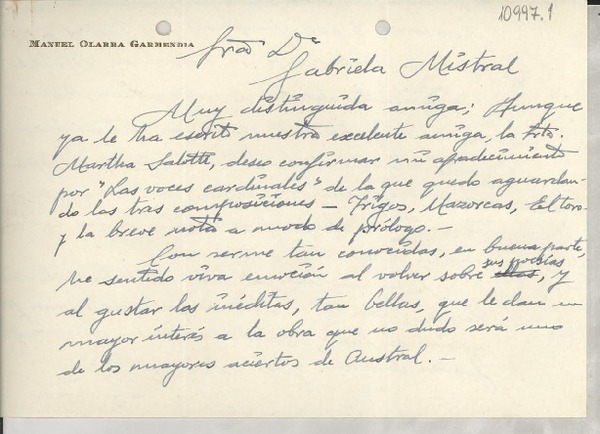 10997.1
MANUEL OLARRA GARMENDIA
Sra Dª
Gabriela Mistral
Muy distinguida amiga; Aunque
ya le ha escrito nuestra excelente amiga, la Srta.
Martha Salotti, deseo confirmar mi agradecimiento
por "Las voces cardinales" de la que quedo aguardan-
do las tres composiciones — Trigos, Mazorcas, El toro -
y la breve nota a modo de prólogo. —
Con serme tan conocidas, en buena parte,
he sentido viva emoción al volver sobre sus poesías ellas, y
al gustar las inéditas, tan bellas, que le dan un
mayor interés a la obra que no dudo será uno
de los mayores aciertos de Austral. —